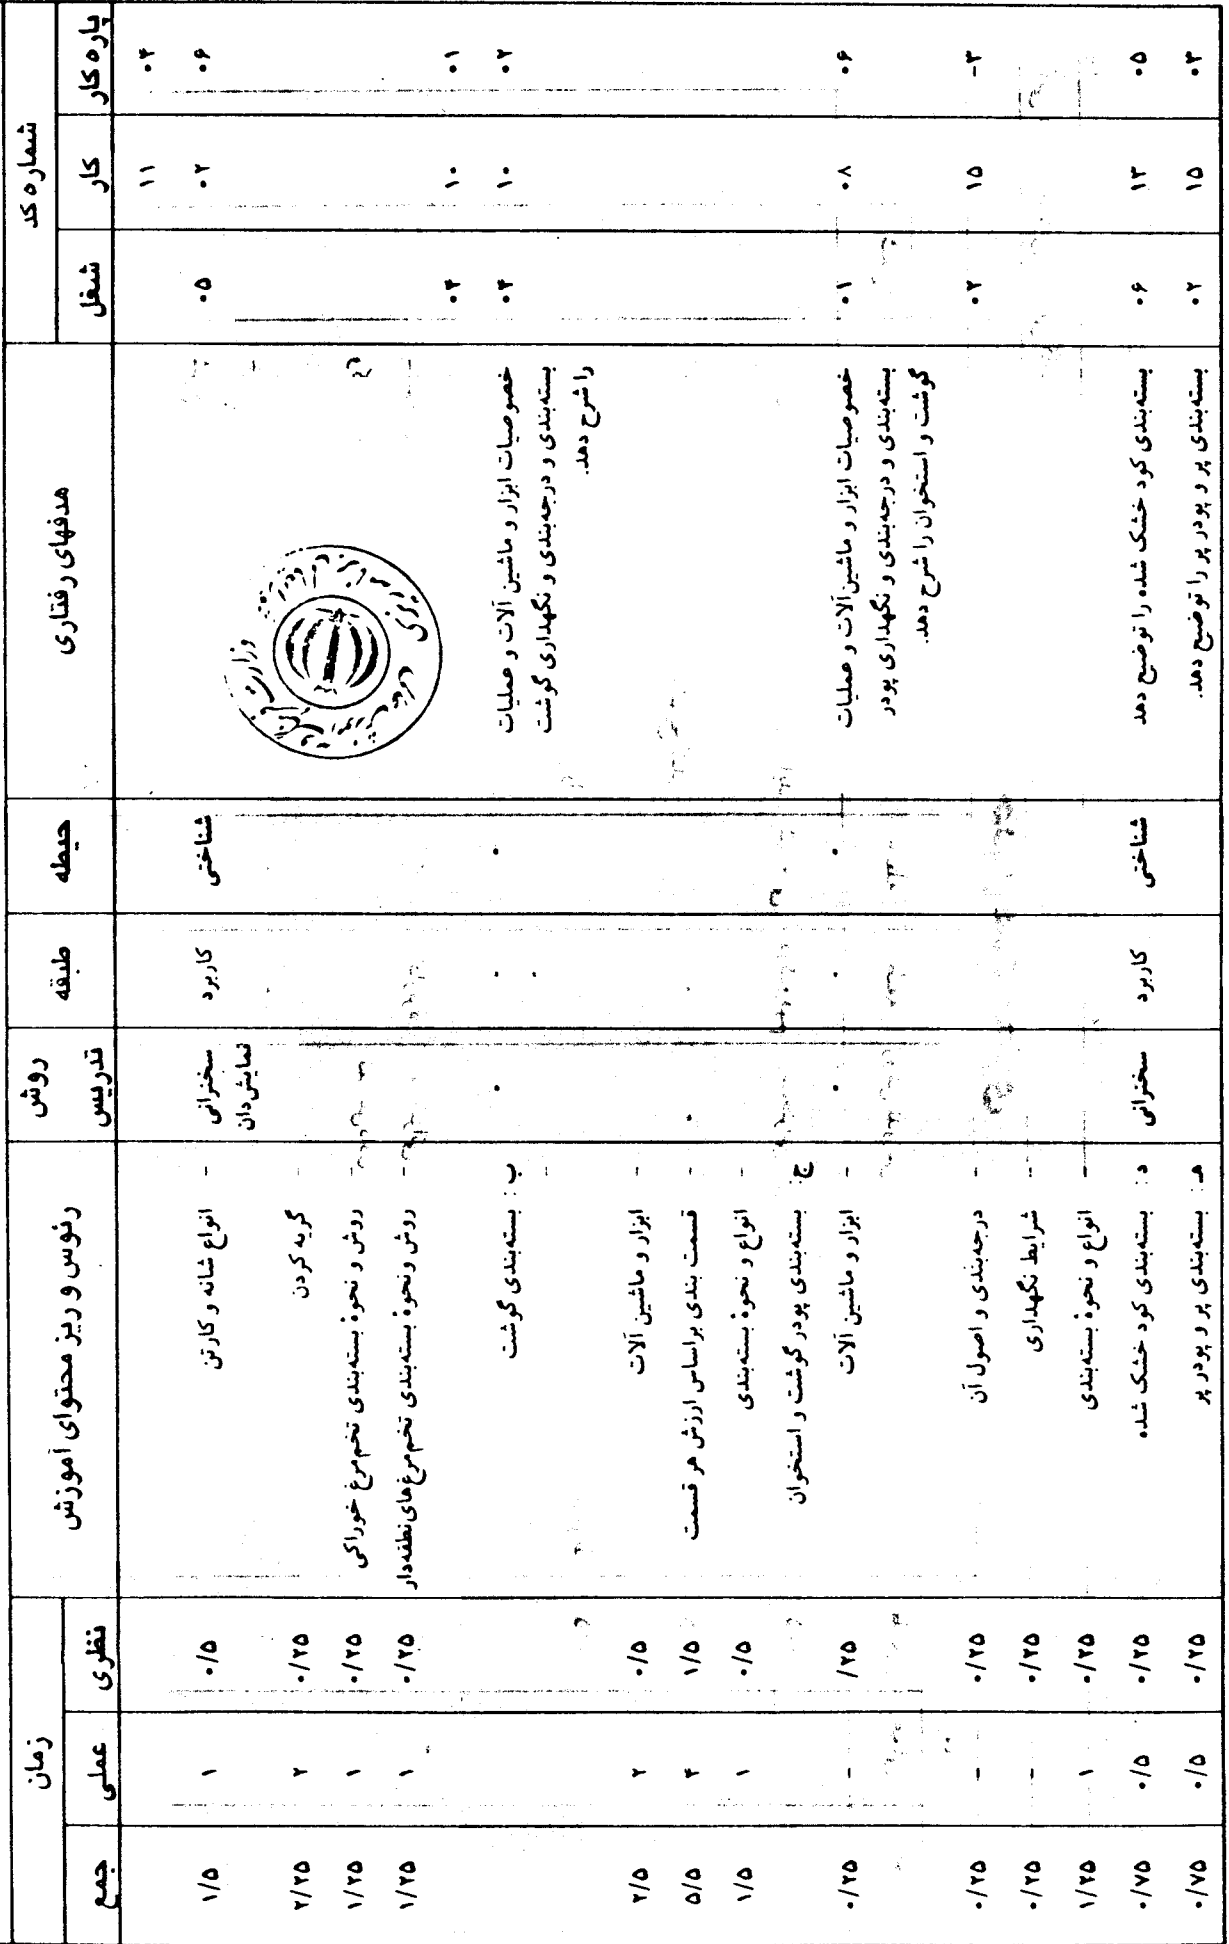 شماره کد | هدفهای رفتاری | حیطه | طبقه | روش تدریس | رئوس و ریز محتوای آموزش | زمان
پاره کار | کار | شغل | نظری | عملی | جمع
۰۴ | ۱۱
۰۶ | ۰۲ | ۰۵ | شناختی | کاربرد | سخنرانی | - انواع شانه و کارتن | ۰/۵ | ۱ | ۱/۵
نمایش دان
- گریه کردن | ۰/۲۵ | ۲ | ۲/۲۵
- روش و نحوهٔ بسته‌بندی تخم‌مرغ خوراکی | ۰/۲۵ | ۱ | ۱/۲۵
- روش و نحوهٔ بسته‌بندی تخم‌مرغ‌های نطفه‌دار | ۰/۲۵ | ۱ | ۱/۲۵
۰۱ | ۱۰ | ۰۴
۰۲ | ۱۰ | ۰۴ | خصوصیات ابزار و ماشین آلات و عملیات | ب : بسته‌بندی گوشت
بسته‌بندی و درجه‌بندی و نگهداری گوشت
را شرح دهد.
- ابزار و ماشین آلات | ۰/۵ | ۲ | ۲/۵
- قسمت بندی براساس ارزش هر قسمت | ۱/۵ | ۴ | ۵/۵
- انواع و نحوهٔ بسته‌بندی | ۰/۵ | ۱ | ۱/۵
ج: بسته‌بندی پودر گوشت و استخوان
۰۶ | ۰۸ | ۰۱ | خصوصیات ابزار و ماشین‌آلات و عملیات | - ابزار و ماشین آلات | /۲۵ | - | ۰/۲۵
بسته‌بندی و درجه‌بندی و نگهداری پودر
گوشت و استخوان را شرح دهد.
-۳ | ۱۵ | ۰۲ | - درجه‌بندی و اصول آن | ۰/۲۵ | - | ۰/۲۵
- شرایط نگهداری | ۰/۲۵ | - | ۰/۲۵
- انواع و نحوهٔ بسته‌بندی | ۰/۲۵ | ۱ | ۱/۲۵
۰۵ | ۱۳ | ۰۶ | بسته‌بندی کود خشک شده را توضیح دهد | شناختی | کاربرد | سخنرانی | د : بسته‌بندی کود خشک شده | ۰/۲۵ | ۰/۵ | ۰/۷۵
۰۳ | ۱۵ | ۰۲ | بسته‌بندی پر و پودر پر را توضیح دهد. | هـ : بسته‌بندی پر و پودر پر | ۰/۲۵ | ۰/۵ | ۰/۷۵